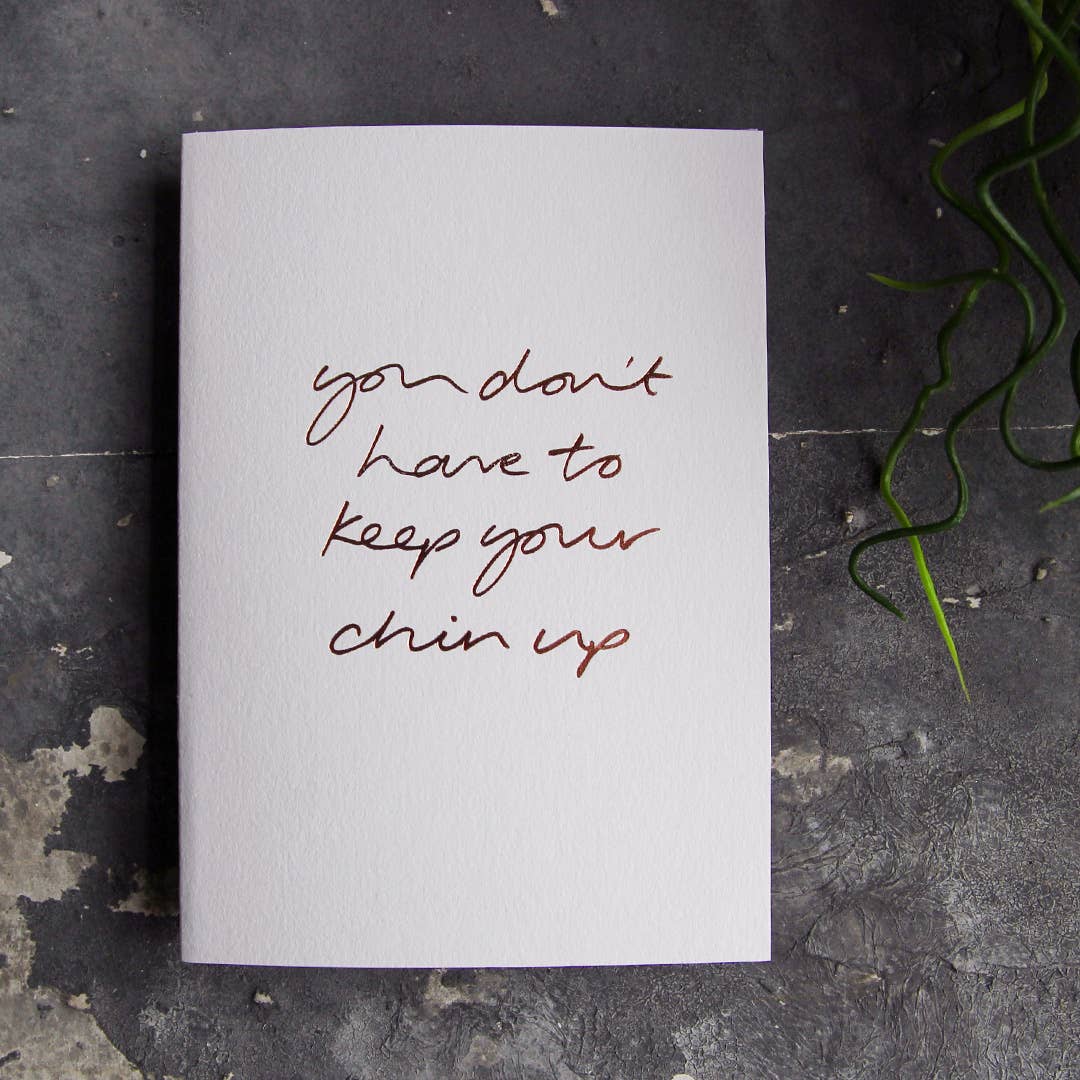 you don't
have to
keep your
chin up